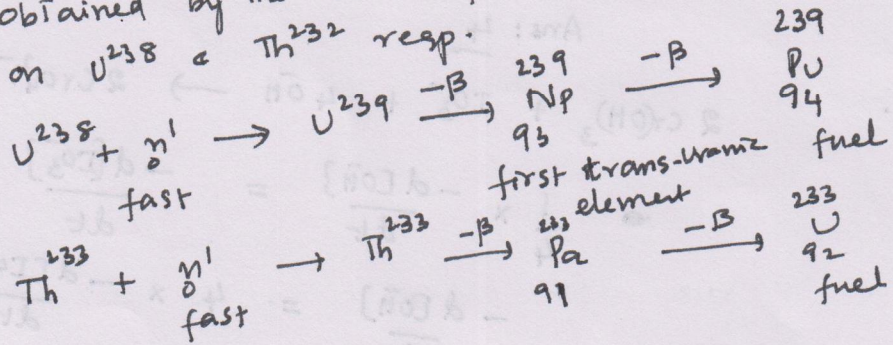 obtained by
on U238 & Th232 resp.
U238 + 0n1 → U239 -β → 239 Np 93 -β → 239 Pu 94
fast first trans-uranic element fuel
Th233 + 0n1 → Th233 -β → 233 Pa 91 -β → 233 U 92
fast fuel